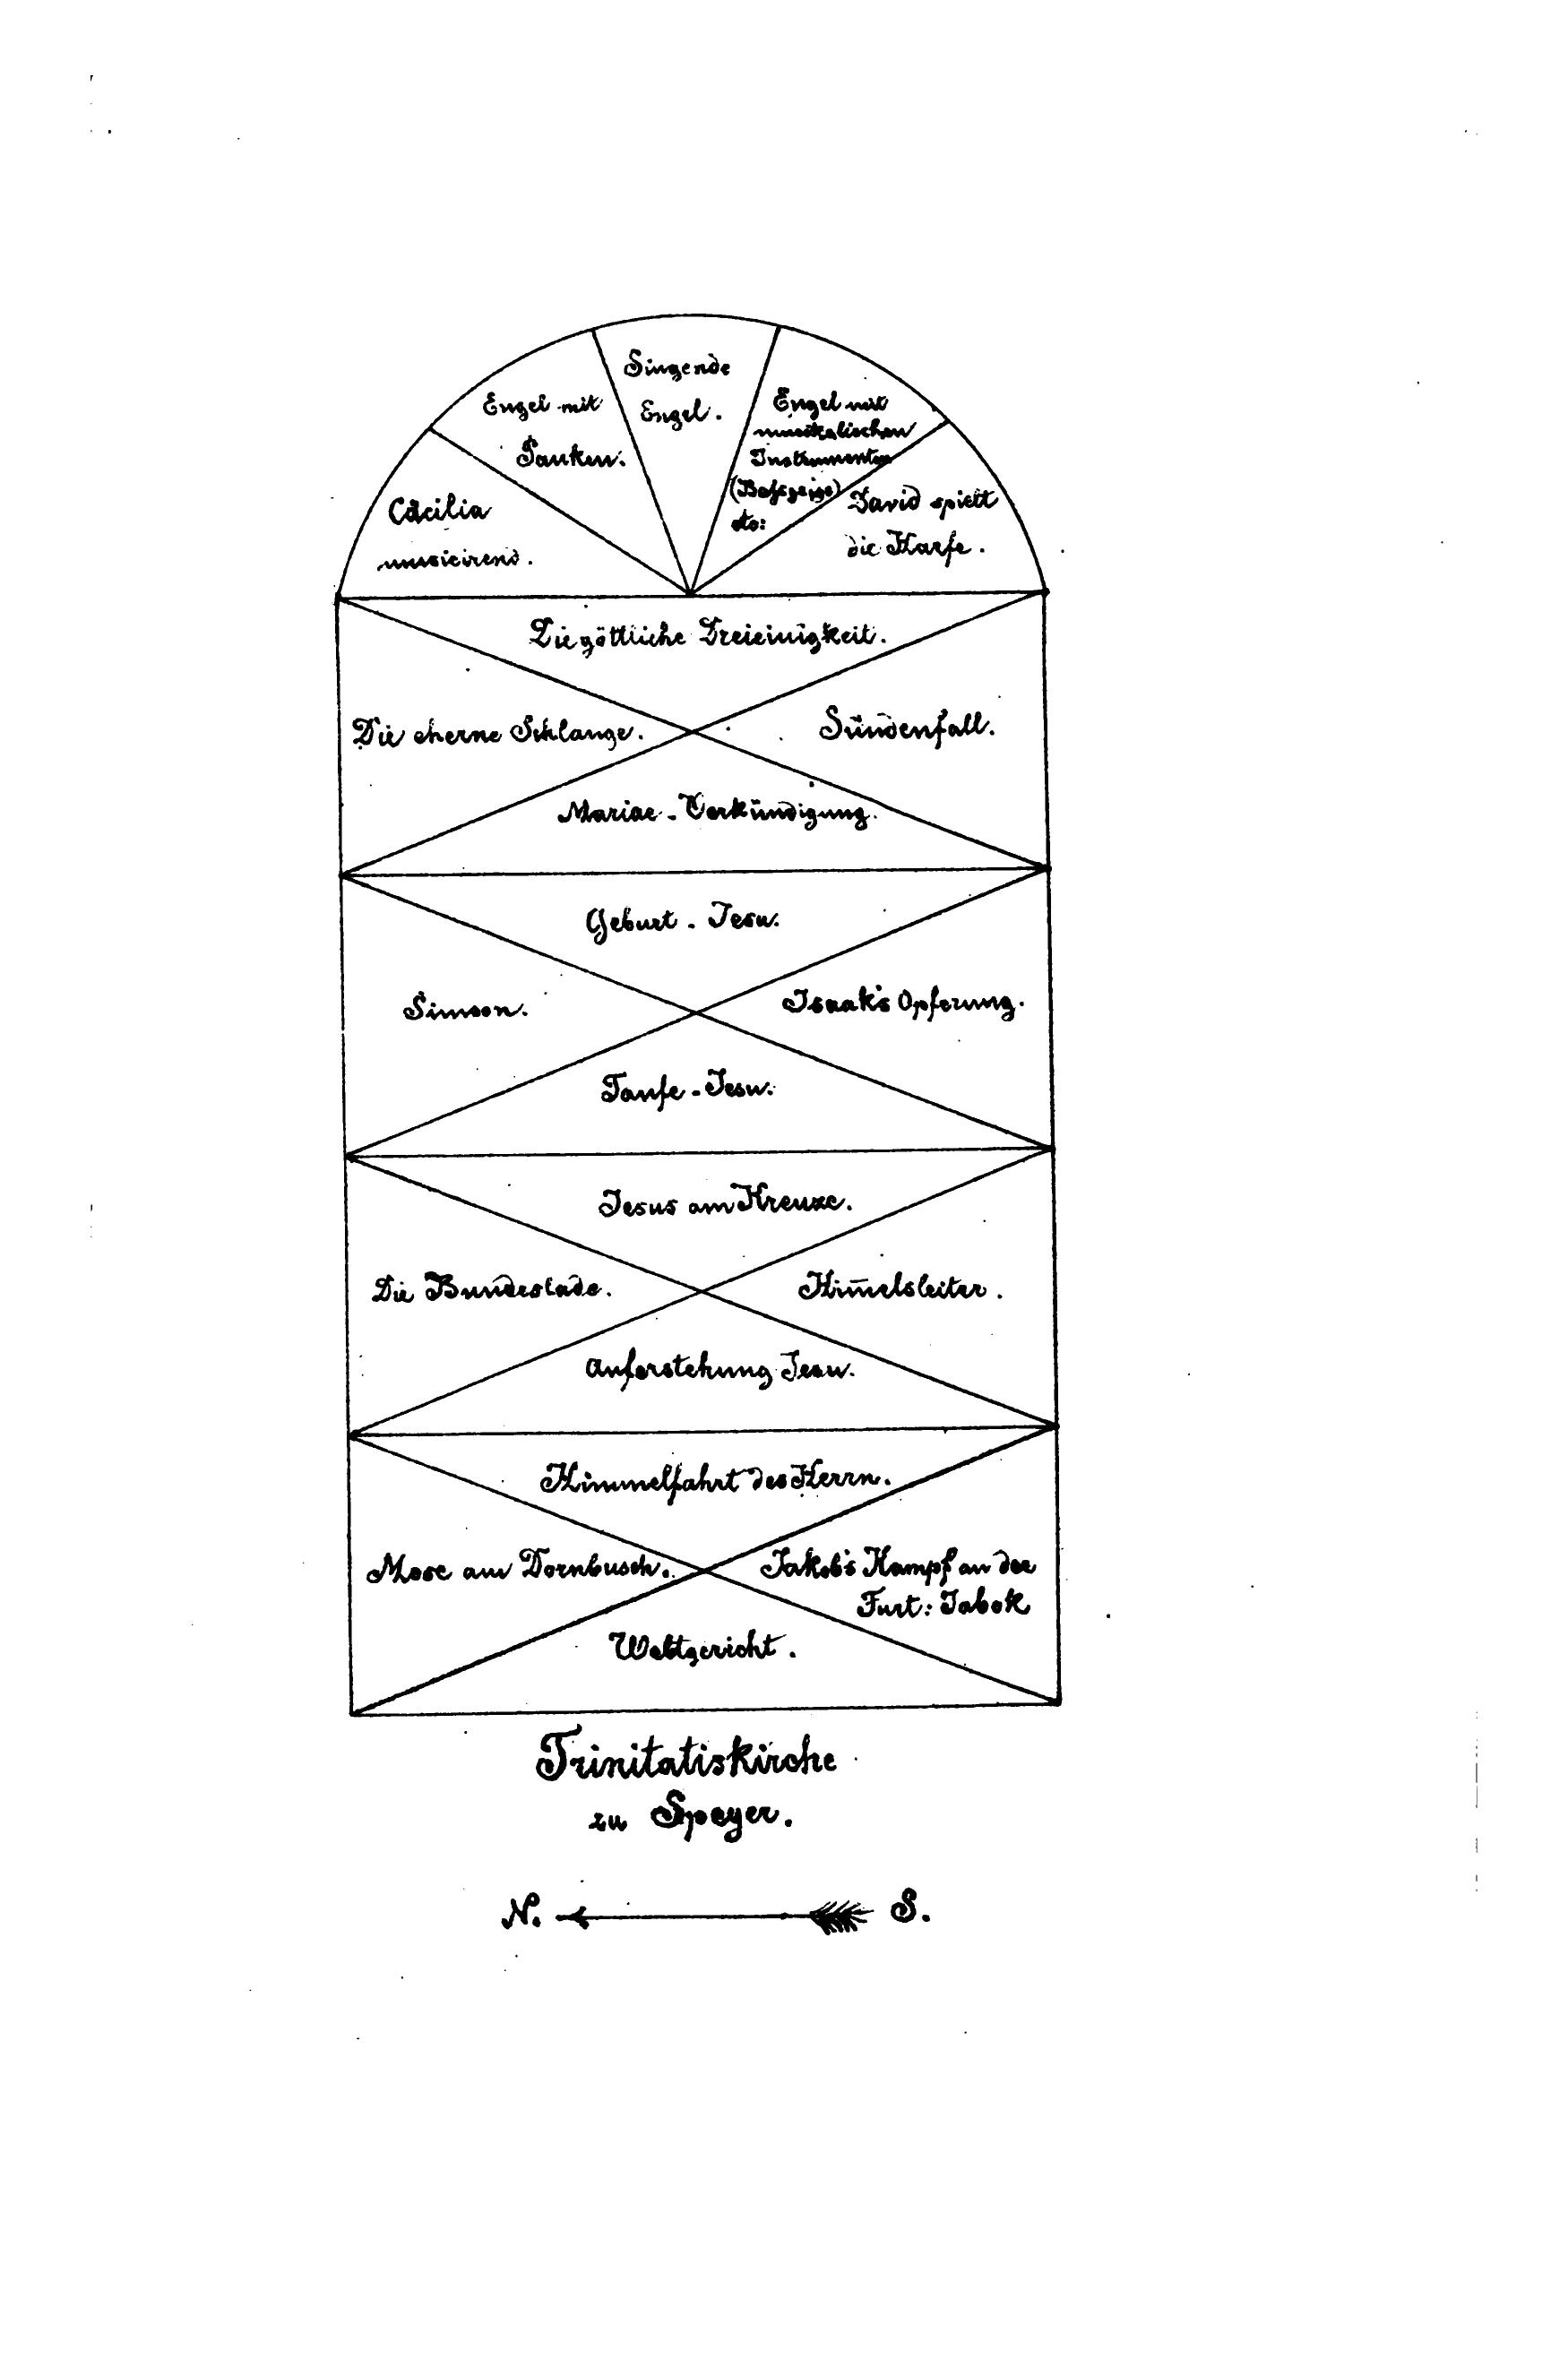 Singende
Engel.
Engel mit
Pauken.
Engel mit
musikalischen
Instrumenten
(Bassgeige)
etc:
Cäcilia
musicirend.
David spielt
die Harfe.
Die göttliche Dreieinigkeit.
Die eherne Schlange.
Sündenfall.
Mariae-Verkündigung.
Geburt-Jesu.
Simson.
Isaak's Opferung.
Taufe-Jesu.
Jesus am Kreuze.
Die Bundeslade.
Him̅elsleiter.
Auferstehung Jesu.
Himmelfahrt des Herrn.
Mose am Dornbusch.
Jakob's Kampf an der
Furt: Jabok
Weltgericht.
Trinitatiskirche
zu Speyer.
N. S.